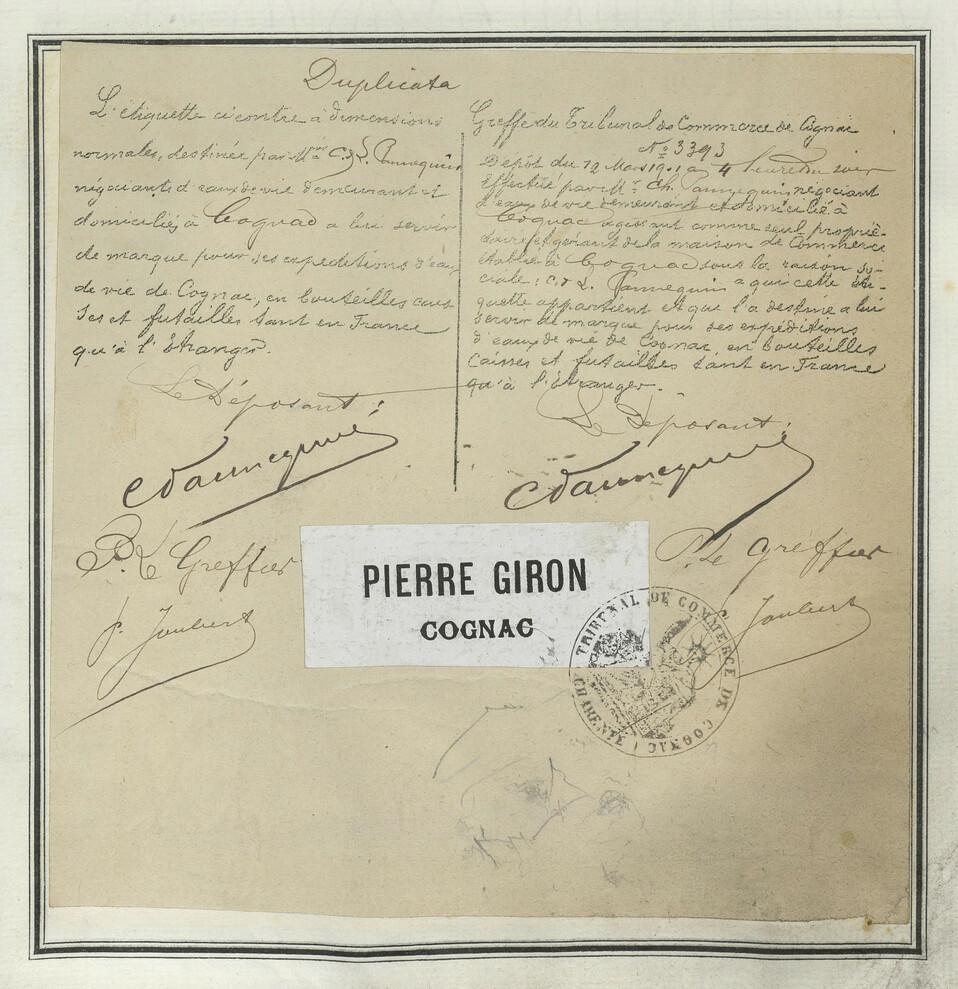 Duplicata
L'étiquette ci contre à dimensions
normales, destinée par Mrs C. & L. Pannequin
négociants d'eaux de vie demeurant et
domiciliés à Cognac a lui servir
de marque pour ses expéditions d'eaux
de vie de Cognac, en bouteilles cais
ses et futailles tant en France
qu'à l'étranger.
Le Déposant :
P. Le Greffier
P. Joubert
Greffe du Tribunal de Commerce de Cognac
No 3393
Dépôt du 12 Mars 1901 a 4 heures du soir
Effectué par Mr Ch. Pannequin, négociant
d'eaux de vie demeurant et domicilié à
Cognac agissant comme seul proprié-
taire et gérant de la maison de Commerce
établie à Cognac sous la raison so-
ciale : C. & L. Pannequin a qui cette éti-
quette appartient et que l'a destine a lui
servir de marque pour ses expéditions
d'eaux de vie de Cognac en bouteilles
caisses et futailles tant en France
qu'à l'étranger.
Le Déposant :
P. Le Greffier
P. Joubert
PIERRE GIRON
COGNAC
TRIBUNAL DE COMMERCE DE COGNAC
(CHARENTE)